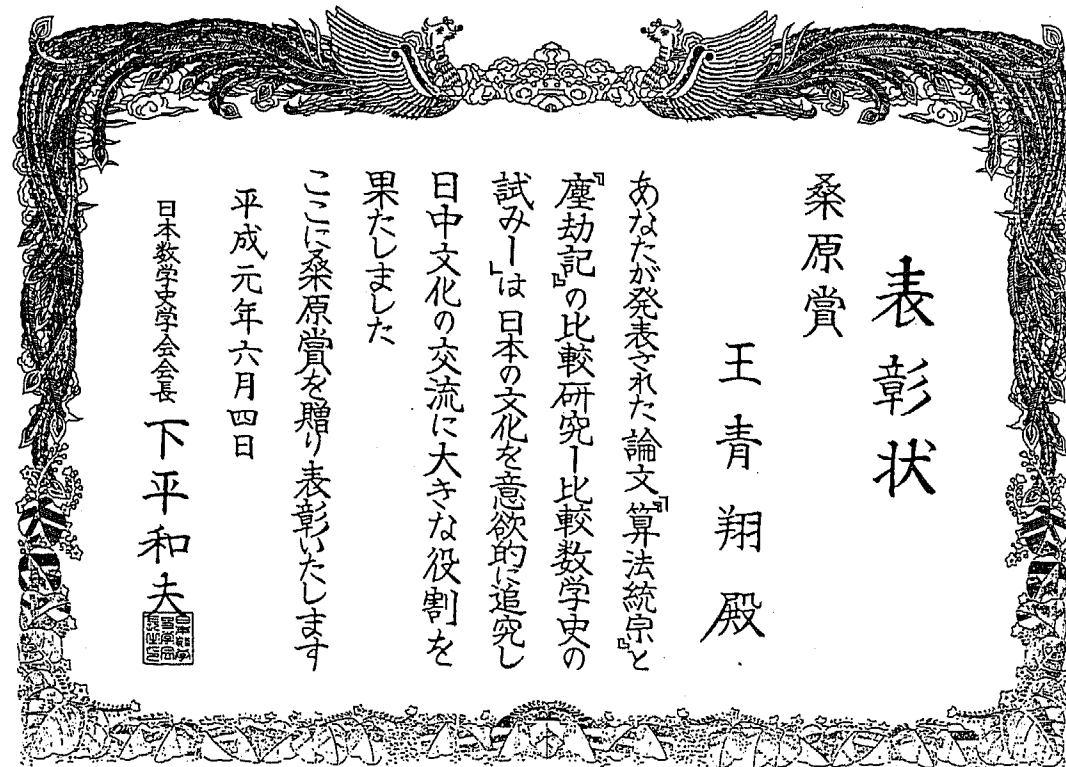 表彰状
桑原賞
王青翔殿
あなたが発表された論文『算法統宗』と
『塵劫記』の比較研究ー比較数学史の
試みー」は日本の文化を意欲的に追究し
日中文化の交流に大きな役割を
果たしました
ここに桑原賞を贈り表彰いたします
平成元年六月四日
日本数学史学会会長 下平和夫